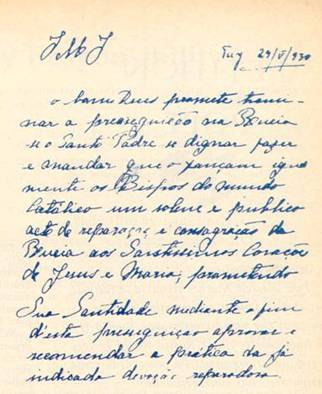 J M J Tuy 29/V/930
o bom Deus promete termi-
nar a preseguição na Rússia
se o Santo Padre se dignar fazer
e mandar que o façam igual-
mente os Bispos do mundo
Católico um solene e publico
acto de reparação e consagração da
Rússia aos Santissimos Corações
de Jesus e Maria, prometendo
Sua Santidade mediante o fim
d'esta preseguiçao aprovar e
recomendar a prática da já
indicada devoção reparadora.